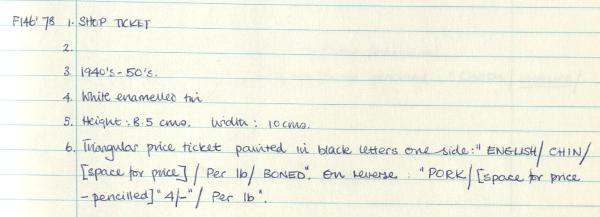 F146'78 1. SHOP TICKET
2.
3. 1940's - 50's.
4. White enamelled tin
5. Height: 8.5 cms. Width: 10 cms.
6. Triangular price ticket painted in black letters one side: "ENGLISH/ CHIN/
[space for price] / Per lb/ BONED". On reverse : "PORK/ [space for price
- pencilled] "4/-" / Per lb".